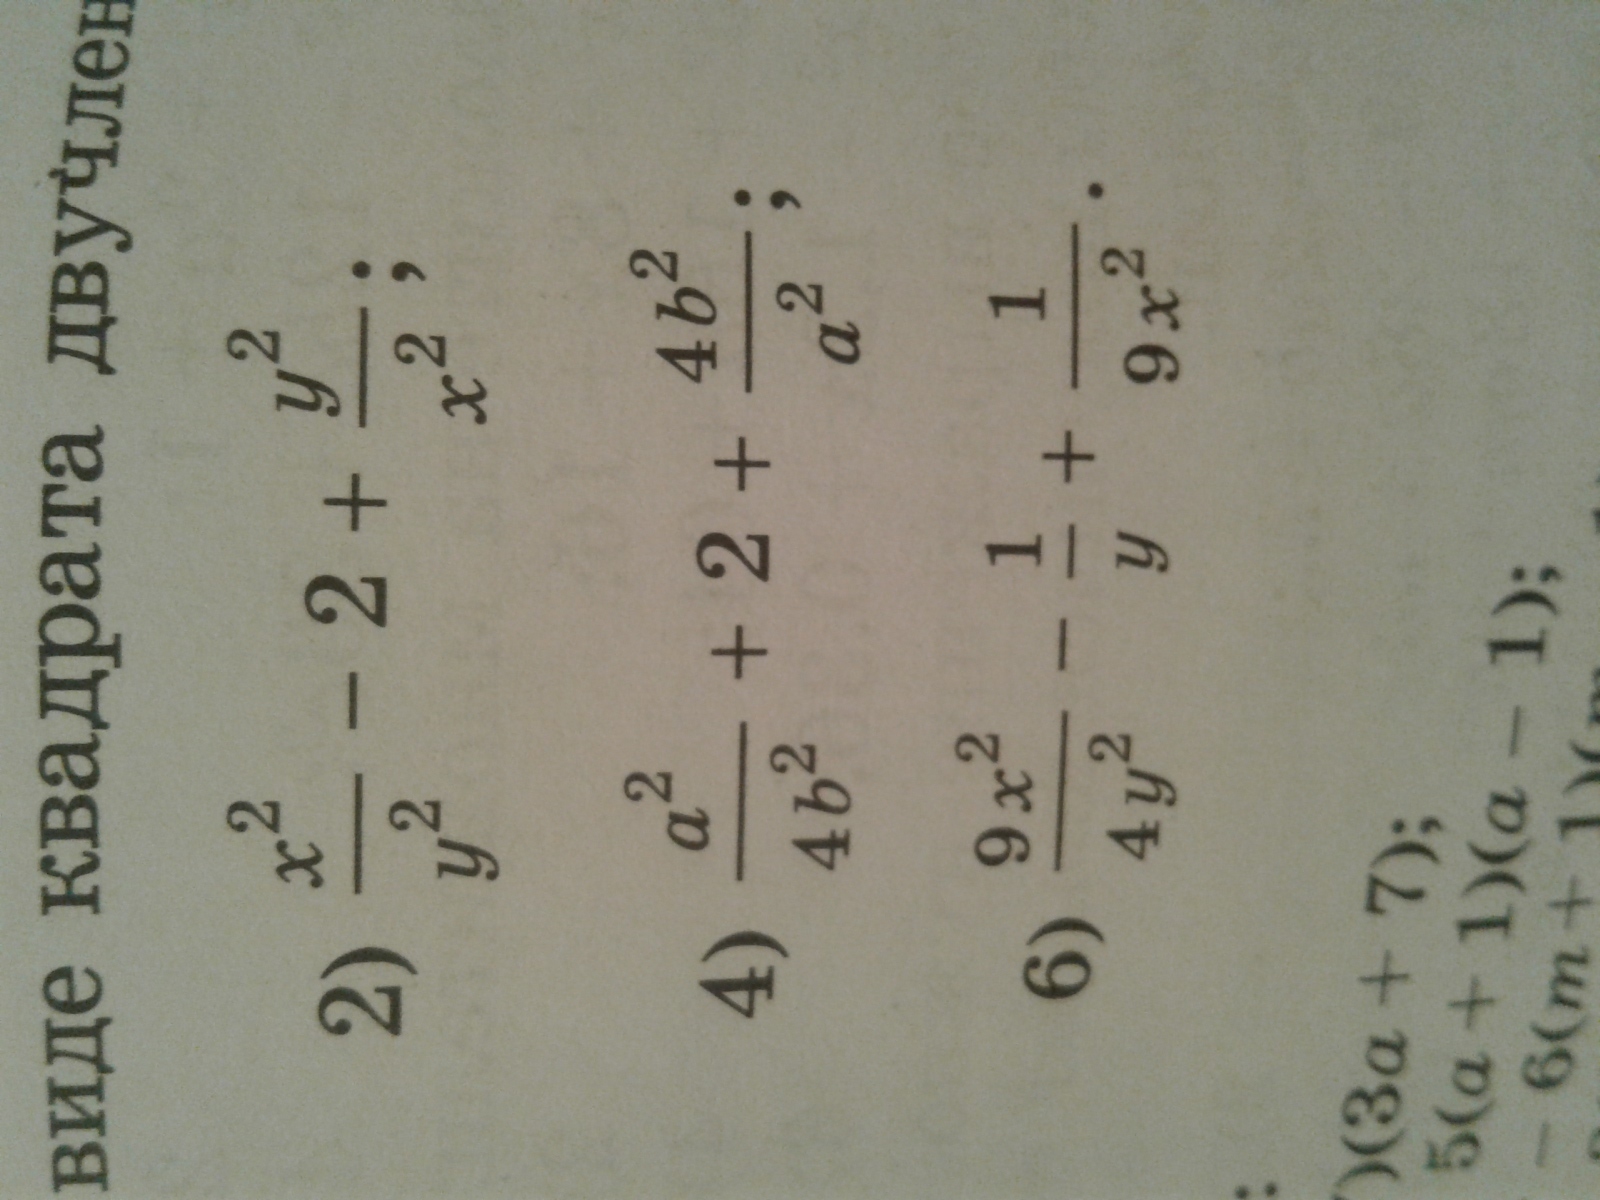 виде квадрата двучлен
2) x²/y² − 2 + y²/x²;
4) a²/4b² + 2 + 4b²/a²;
6) 9x²/4y² − 1/y + 1/9x².
)(3a + 7);
5(a + 1)(a − 1);
− 6(m + 1)(m